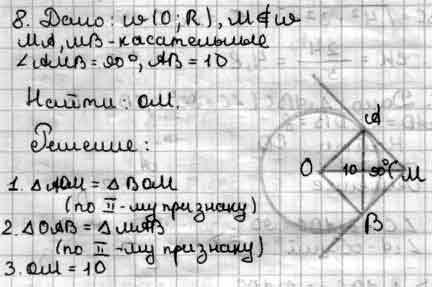 8. Дано: w(O; R), M∉w
MA, MB - касательные
∠AMB = 90°, AB = 10
Найти: OM.
Решение:
1. △AOM = △BOM
(по II-му признаку)
2. △OAB = △MAB
(по II-му признаку)
3. OM = 10
A
O 10 90° M
B